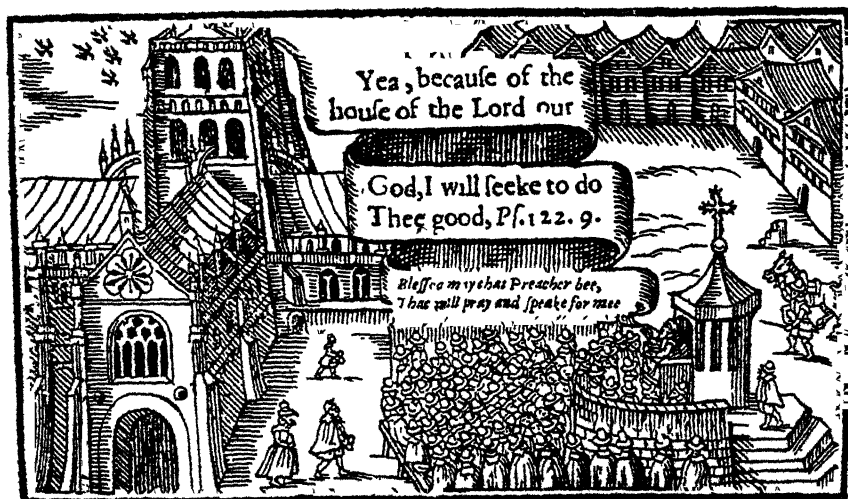 Yea, becauſe of the
houſe of the Lord our
God, I will ſeeke to do
Thee good, Pſ. 122. 9.
Bleſſed may that Preacher bee,
That will pray and ſpeake for mee